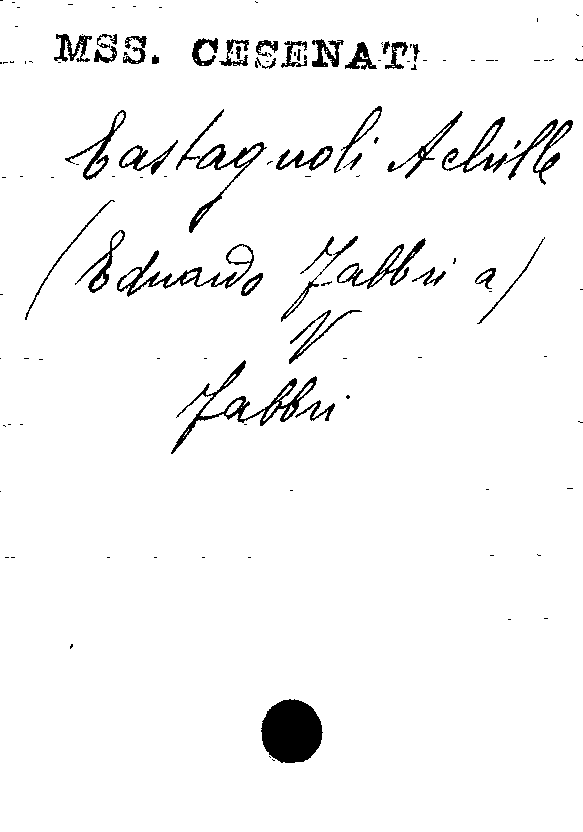 MSS. CESENATI
Castagnoli Achille
(Eduardo Fabbri a)
V
Fabbri